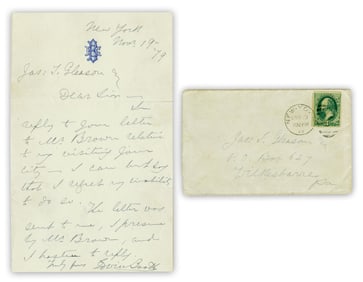 New York
Nov 19-
79
Jas. T. Gleason
Dear Sir —
In
reply to your letter
to Mr Brown relative
to my visiting your
city — I can but say
that I regret my inability
to do so.
The letter was
sent to me, I presume
by Mr Brown, and
I hasten to reply
Truly yours Edwin Booth
NEW YORK
Jas. T. Gleason
P.O. Box 627
Wilkesbarre
Pa